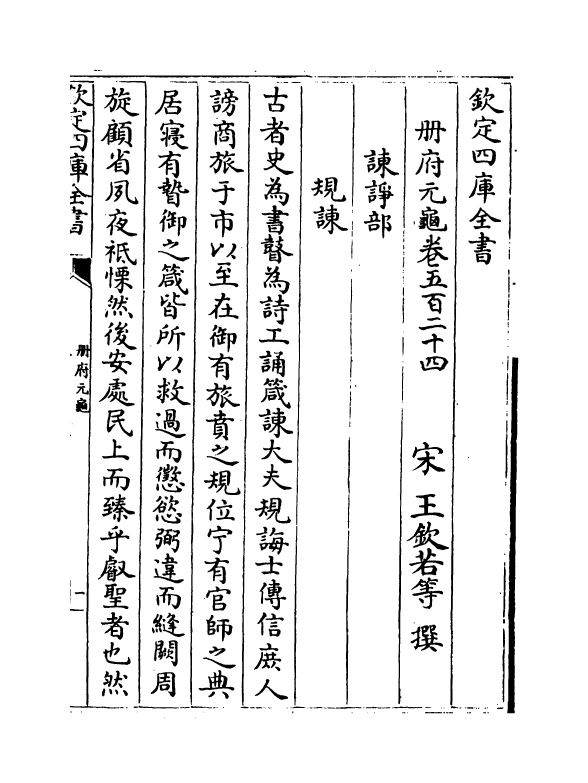 欽定四庫全書
册府元龜卷五百二十四　宋　王欽若等　撰
諫諍部
規諫
古者史為書瞽為詩工誦箴諫大夫規誨士傳信庻人
謗商旅于市以至在御有旅賁之規位宁有官師之典
居寝有暬御之箴皆所以救過而懲慾弼違而縫闕周
旋顧省夙夜祗慄然後安處民上而臻乎叡聖者也然
欽定四庫全書
册府元龜
一